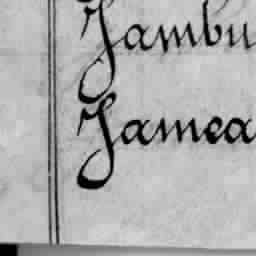 Jambu
Jamea